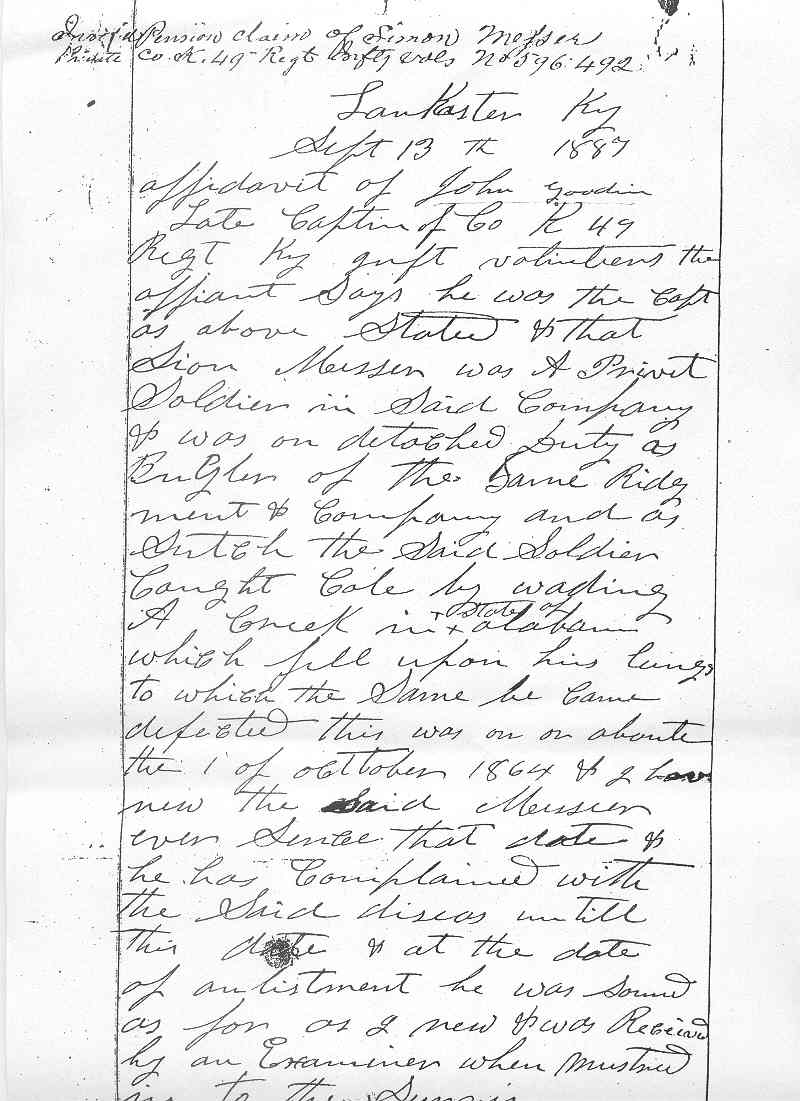 Invalid Pension claim of Simon Messer
Private Co. K. 49 Regt Ky vols No 596.492
Lankaster Ky
Sept 13 th 1887
affidavit of John Goodin
Late Captin of Co K 49
Regt Ky volintiens the
affiant Says he was the Capt
as above Stated & that
Sion Messer was A Privet
Soldier in Said Company
& was on detached Duty as
Bugler of the Same Ridg
ment & Company and as
Sutch the Said Soldier
Caught Cole by wading
A Creek in State of alabam
which fell upon his lungs
to which the Same be Came
defected this was on or aboute
the 1 of octtober 1864 & I have
new the Said Messer
ever Sence that date &
he has Complained with
the Said diseas untill
this date & at the date
of anlistment he was Sound
as far as I new & was Received
by an Examiner when mustred
in to the Survis